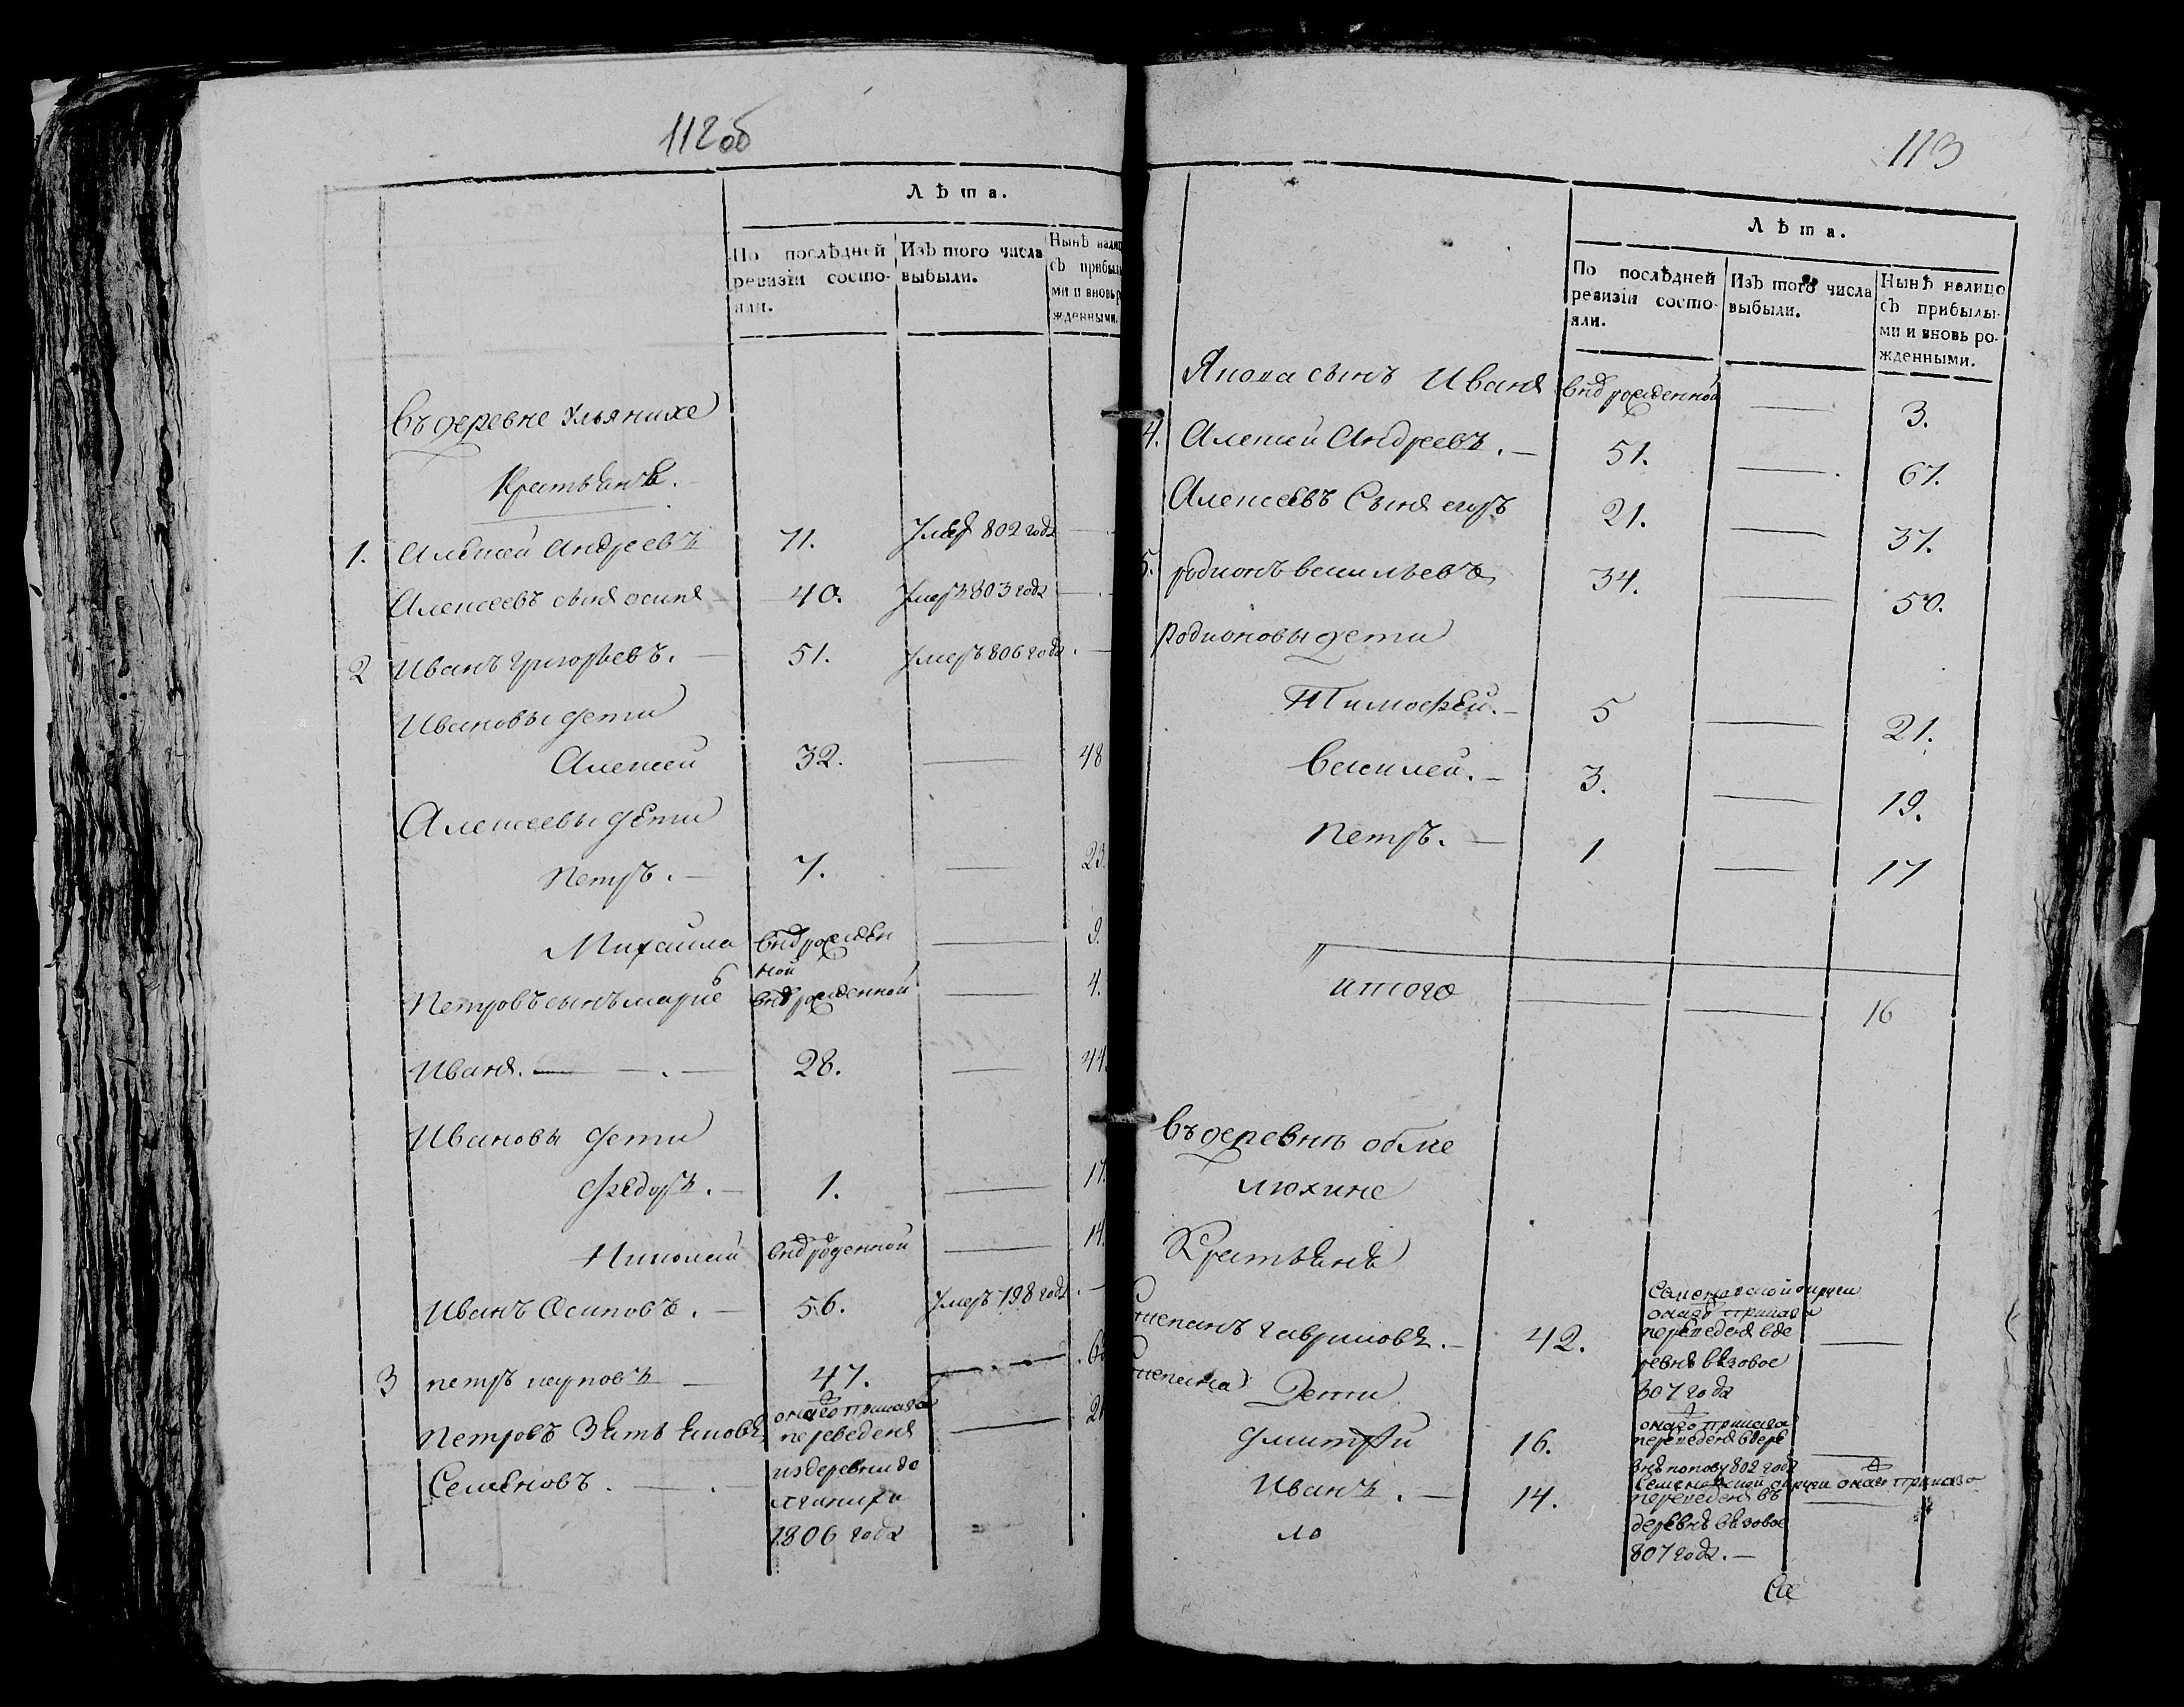 112об
Лѣта.
По послѣдней ревизіи состояли.
Изъ того числа выбыли.
Нынѣ налиц съ прибылы ми и вновь р жденными.
въ деревне Ульянихе
Крестьяня.
1. Алексей Андреевъ 71. Умеръ 802 года
Алексеевъ сынъ осипъ 40. Умеръ 803 года
2 Иванъ григорьевъ. 51. Умеръ 806 года
Ивановы дети
Алексей 32. 48
Алексеевы дети
Петръ. 7. 23.
Михаила вновь рожден
ной 9.
Петровъ сынъ марке вновь рожденной 4.
Иванъ. 28. 44.
Ивановы дети
Федоръ. 1. 17.
Николай вновь рожденной 14.
Иванъ Осиповъ. 56. Умеръ 798 года
3 петръ 47.
Петровъ Зять яковъ онаго приказа
переведенъ
Семеновъ. из деревни
1806 года
113
Лѣта.
По послѣдней ревизіи состояли.
Изъ того числа выбыли.
Нынѣ налицо съ прибылыми и вновь рожденными.
Якова сынъ Иванъ вновь рожденной 3.
4. Алексей Андреевъ. 51. 67.
Алексеевъ Сынъ егоръ 21. 37.
5. родионъ васильевъ 34. 50.
Родионовы дети
Тимофей. 5 21.
Василей. 3. 19.
Петръ. 1 17
итого 16
въ деревнѣ обме
люхине
Крестьянѣ
Степанъ гавриловъ. 42. Семеновской округи
онаго приказа
переведенъ в де
ревню вязовое
807 года
Степана Дети
дмитрѣй 16. онаго приказа
переведенъ в дере
внѣ попову 802 года
Иванъ. 14. Семеновской округи онаго приказа
переведенъ въ
деревнѣ вязовое
807 года.
ло
Са